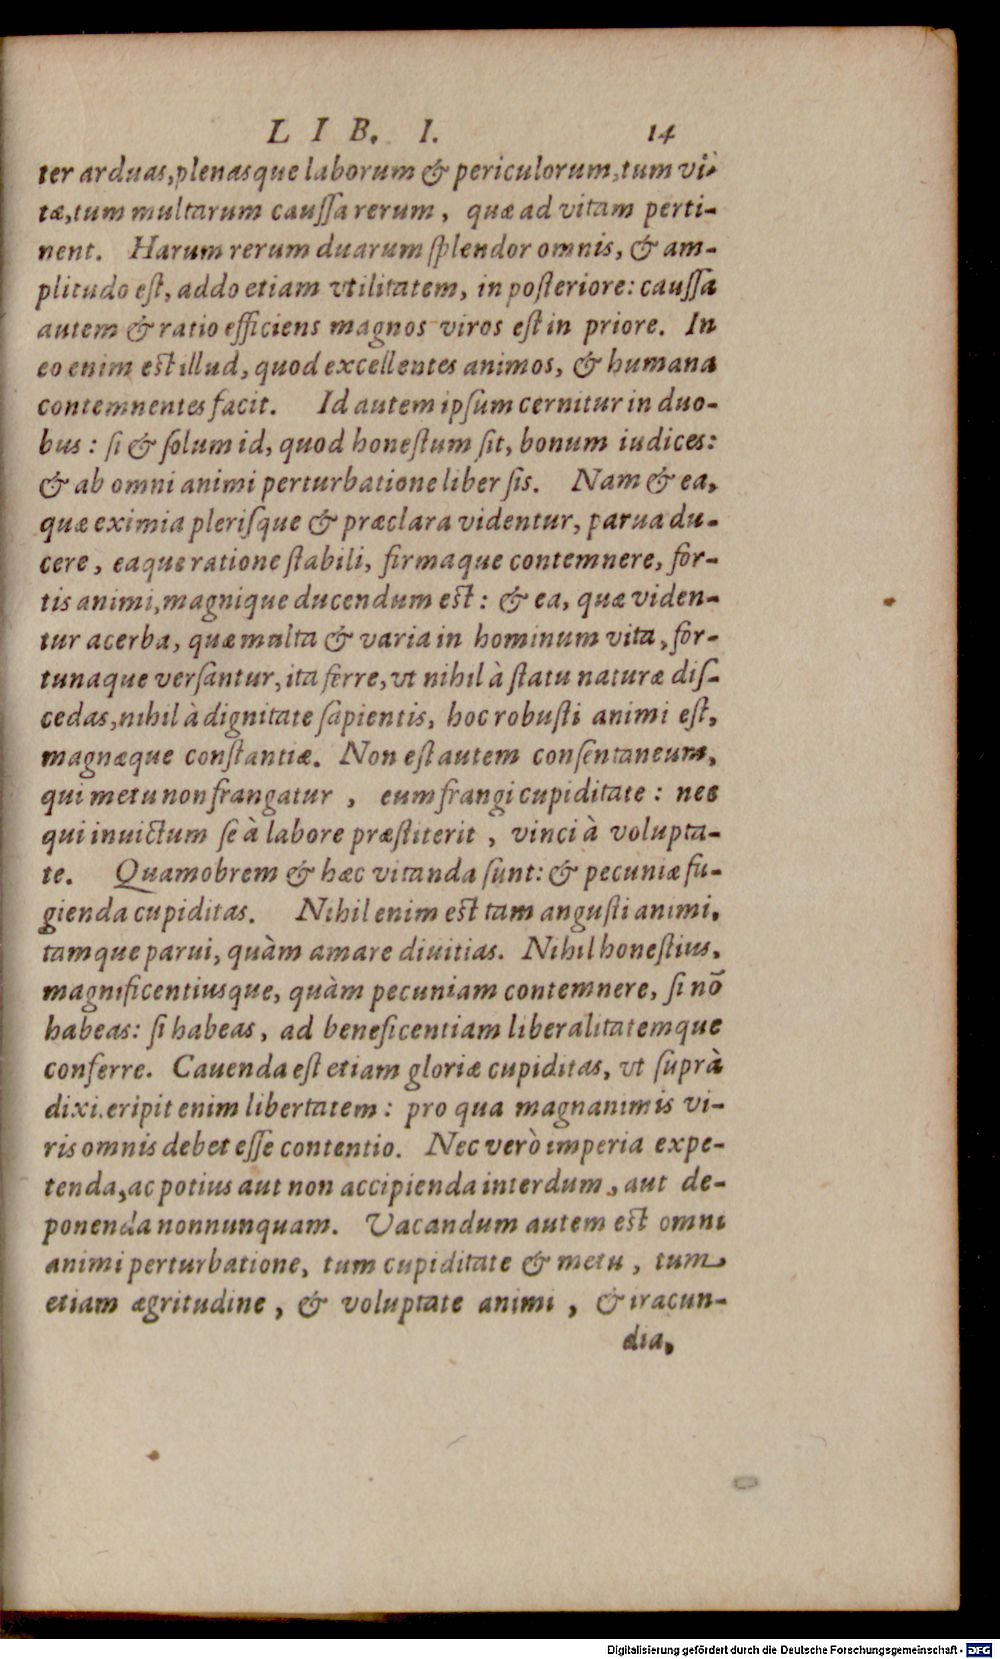 LIB. I. 14
ter arduas, plenasque laborum & periculorum, tum vi-
tæ, tum multarum caussa rerum, quæ ad vitam perti-
nent. Harum rerum duarum splendor omnis, & am-
plitudo est, addo etiam vtilitatem, in posteriore: caussa
autem & ratio efficiens magnos viros est in priore. In
eo enim est illud, quod excellentes animos, & humana
contemnentes facit. Id autem ipsum cernitur in duo-
bus: si & solum id, quod honestum sit, bonum iudices:
& ab omni animi perturbatione liber sis. Nam & ea,
quæ eximia plerisque & præclara videntur, parua du-
cere, eaque ratione stabili, firmaque contemnere, for-
tis animi, magnique ducendum est: & ea, quæ viden-
tur acerba, quæ multa & varia in hominum vita, for-
tunaque versantur, ita ferre, vt nihil à statu naturæ dis-
cedas, nihil à dignitate sapientis, hoc robusti animi est,
magnæque constantiæ. Non est autem consentaneum,
qui metu non frangatur, eum frangi cupiditate: nec
qui inuictum se à labore præstiterit, vinci à volupta-
te. Quamobrem & hæc vitanda sunt: & pecuniæ fu-
gienda cupiditas. Nihil enim est tam angusti animi,
tamque parui, quàm amare diuitias. Nihil honestius,
magnificentiusque, quàm pecuniam contemnere, si nō
habeas: si habeas, ad beneficentiam liberalitatemque
conferre. Cauenda est etiam gloriæ cupiditas, vt suprà
dixi. eripit enim libertatem: pro qua magnanimis vi-
ris omnis debet esse contentio. Nec verò imperia expe-
tenda, ac potius aut non accipienda interdum, aut de-
ponenda nonnunquam. Vacandum autem est omni
animi perturbatione, tum cupiditate & metu, tum
etiam ægritudine, & voluptate animi, & iracun-
dia,
Digitalisierung gefördert durch die Deutsche Forschungsgemeinschaft - DFG